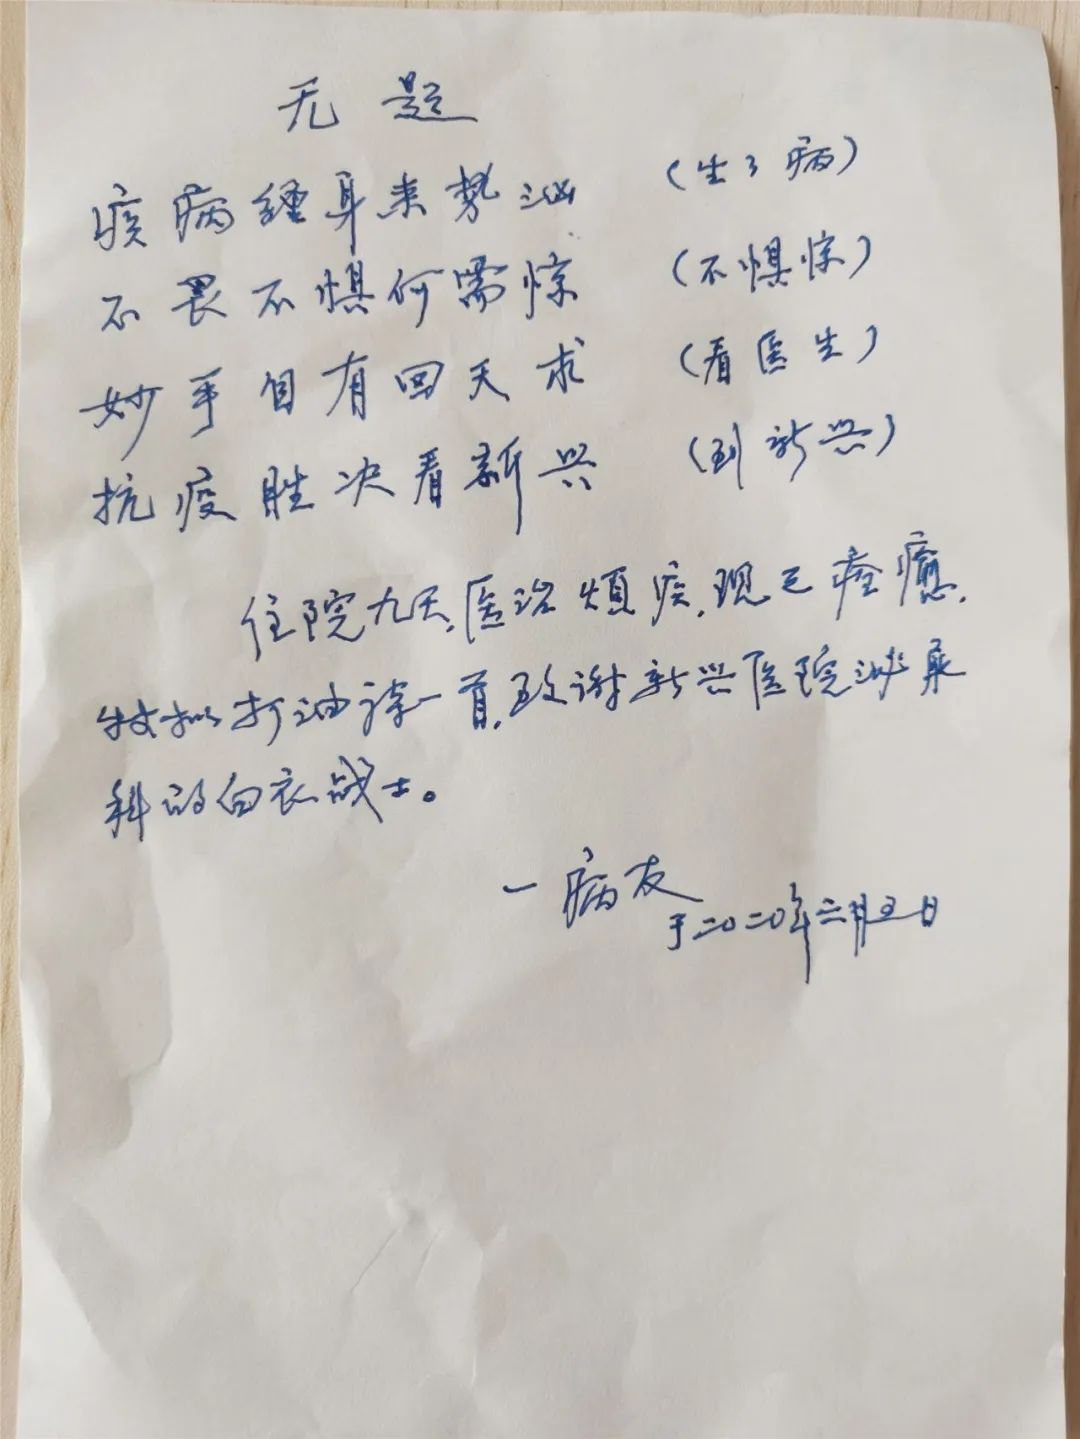 无题
疾病缠身来势汹 (生了病)
不畏不惧何需惊 (不惧惊)
妙手自有回天术 (看医生)
抗疫胜决看新兴 (到新兴)
住院九天,医治烦疾,现已痊癒,
特拟打油诗一首,致谢新兴医院泌尿
科的白衣战士。
一病友
于二〇二〇年三月五日